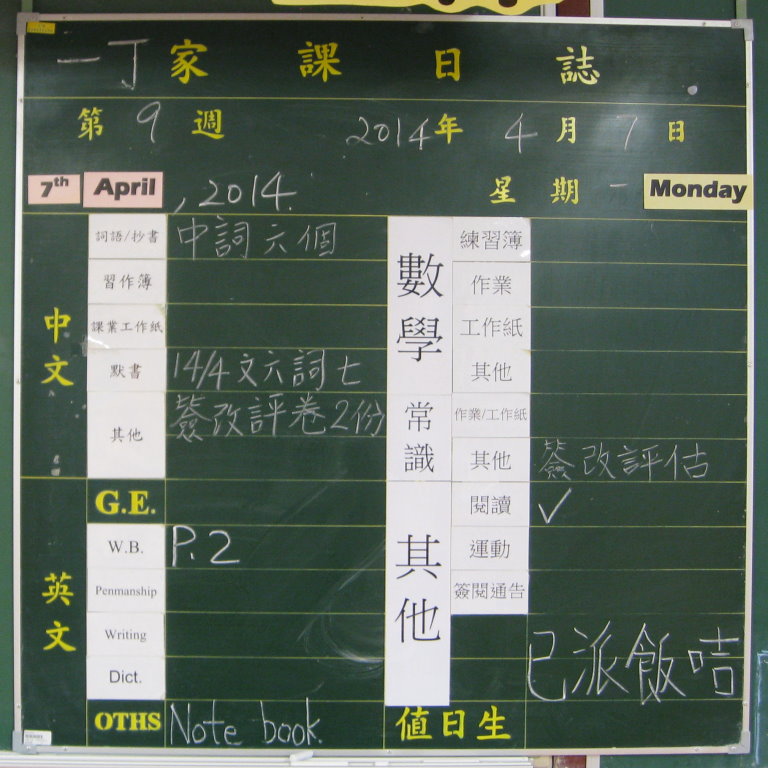 一丁家課日誌
第9週 2014年4月7日
7th April, 2014. 星期一 Monday
中文
詞語/抄書 中詞六個
習作簿
課業工作紙
默書 14/4文六詞七
其他 簽改評卷2份
英文
G.E.
W.B. P.2
Penmanship
Writing
Dict.
OTHS Note book.
數學
練習簿
作業
工作紙
其他
常識
作業/工作紙
其他 簽改評估
其他
閱讀 ✓
運動
簽閱通告
已派飯咭
值日生